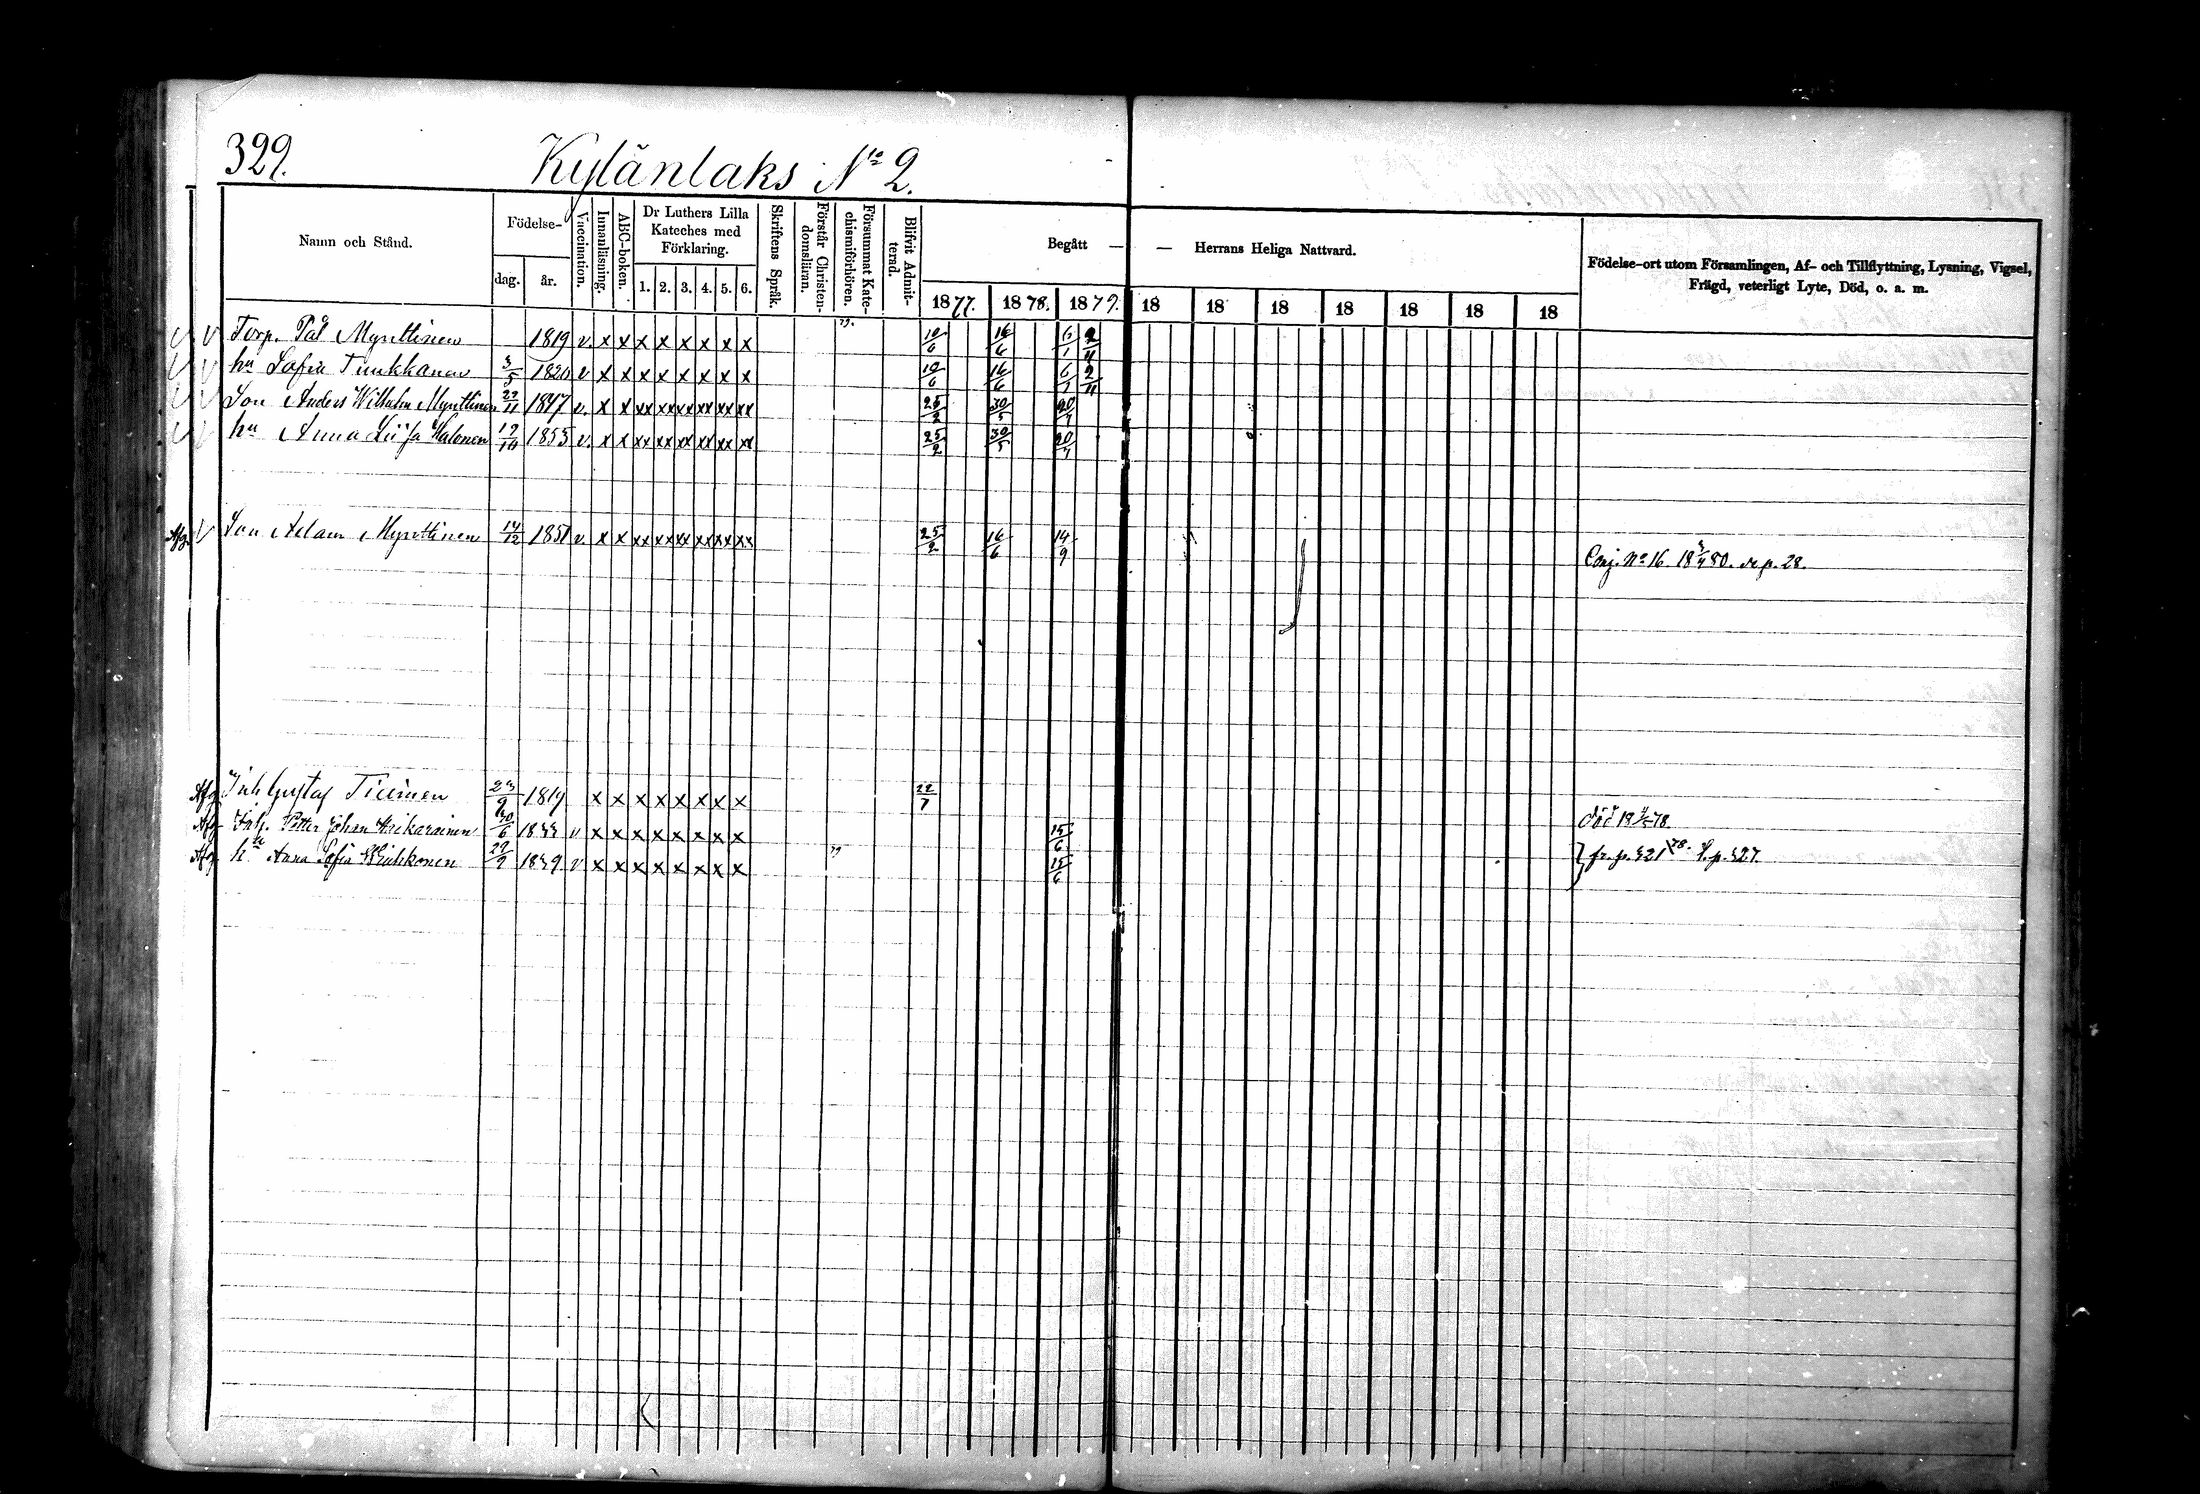 329.
Kylänlaks No 2.
Namn och Stånd.
Födelse-
dag.
år.
Vaccination.
Innanläsning.
ABC-boken.
Dr Luthers Lilla
Kateches med
Förklaring.
1. 2. 3. 4. 5. 6.
Skriftens Språk.
Förstår Christen-
domsläran.
Försummat Kate-
chismiförhören.
Blifvit Admit-
terad.
Begått — — Herrans Heliga Nattvard.
1877. 1878. 1879. 18 18 18 18 18 18 18
Födelse-ort utom Församlingen, Af- och Tillflyttning, Lysning, Vigsel,
Frägd, veterligt Lyte, Död, o. a. m.
Torp. Pål Mynttinen 1819 v. x x x x x x x x 10/6 16/6 6/1 2/11
hu Sofia Tuukkanen 3/5 1820 v x x x x x x x x 10/6 16/6 6/1 2/11
Son Anders Wilhelm Mynttinen 27/11 1847 v. x x xx xx xx xx xx xx 25/2 30/5 20/7
hu Anna Liisa Halonen 1853 v. x x xx xx xx xx xx xx 25/2 30/5 20/7
Afg. V Son Adam Mynttinen 14/12 1851 v. x x xx xx xx xx xx xx 25/2 16/6 14/9
Conj. No 16. 18 80. p. 28.
Afg Inh Gustaf Tiainen 1819 x x x x x x x x 22/7
död 18 78.
Afg Petter Johan 30/6 v x x x x x x x x 15/6
Afg hu Anna Sofia 29/9 v x x x x x x x x 15/6
} fr. p. 321 78. p. 327.